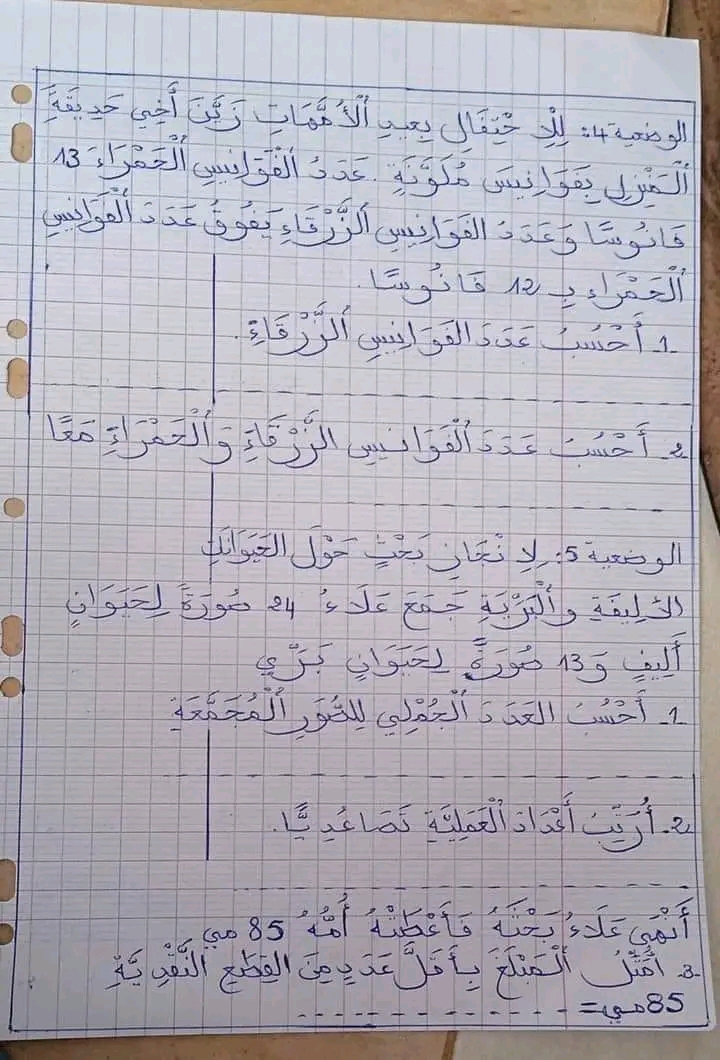 الوضعية 4: لِلْاِحْتِفَالِ بِعِيدِ ٱلْأُمَّهَاتِ زَيَّنَ أَخِي حَدِيقَةَ
ٱلْمَنْزِلِ بِفَوَانِيسَ مُلَوَّنَةٍ. عَدَدُ ٱلْفَوَانِيسِ ٱلْحَمْرَاءَ 13
فَانُوسًا وَعَدَدَ الفَوَانِيسِ ٱلزَّرْقَاءِ يَفُوقُ عَدَدَ ٱلْفَوَانِيسِ
ٱلْحَمْرَاءِ بِـ 12 فَانُوسًا.
1. أَحْسُبُ عَدَدَ الفَوَانِيسِ ٱلزَّرْقَاءِ.
2. أَحْسُبَ عَدَدَ ٱلْفَوَانِيسِ الزَّرْقَاءِ وَٱلْحَمْرَاءِ مَعًا
الوضعية 5: لِإِنْجَازِ بَحْثٍ حَوْلَ الحَيَوَانَاتِ
الأَلِيفَةِ وَٱلْبَرِّيَةِ جَمَعَ عَلَاءُ 24 صُورَةً لِحَيَوَانٍ
أَلِيفٍ وَ 13 صُورَةً لِحَيَوَانٍ بَرِّي
1. أَحْسُبَ العَدَدَ ٱلْجُمْلِي لِلصُّوَرِ ٱلْمُجَمَّعَةِ
2. أُرَتِّبُ أَعْدَادَ ٱلْعَمَلِيَّةِ تَصَاعُدِيًّا.
أَنْهَى عَلَاءُ بَحْثَهُ فَأَعْطَتْهُ أُمُّهُ 85 مي
3. أُمَثِّلُ ٱلْمَبْلَغَ بِأَقَلَّ عَدَدٍ مِنَ القِطَعِ النَّقْدِيَّةِ
85 مي =